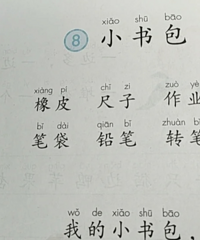 xiǎo shū bāo
8 小书包
xiàng pí chǐ zi zuò yè
橡皮 尺子 作业
bǐ dài qiān bǐ zhuàn bǐ
笔袋 铅笔 转笔
wǒ de xiǎo shū bāo
我的小书包，